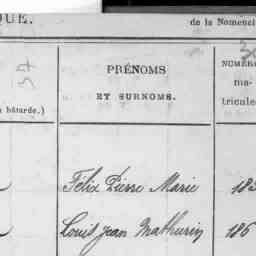 QUE.
de la Nomencl
37
PRÉNOMS
ET SURNOMS.
NUMÉRO
ma-
tricule
bâtarde.)
Félix Pierre Marie
Louis Jean Mathurin
186